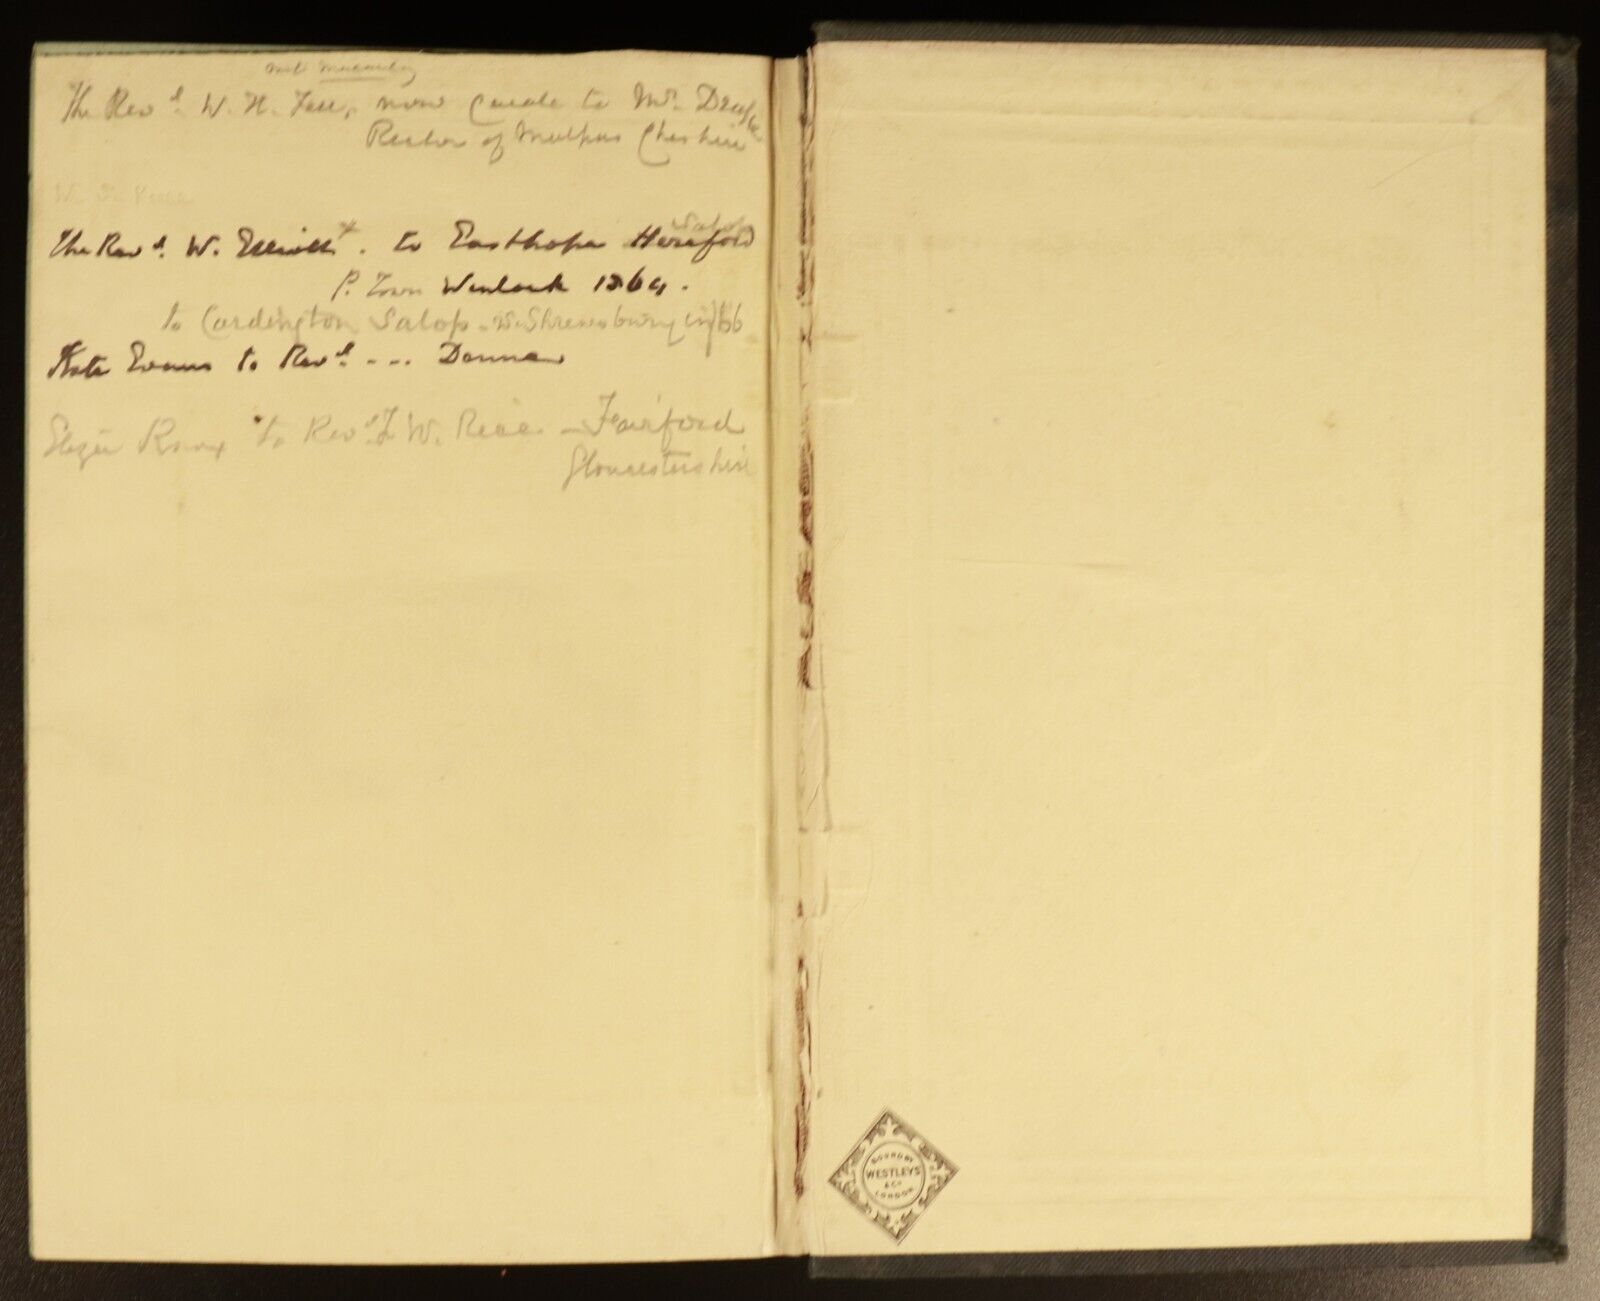 The Revd. W. H. Fell, now Curate to Mr. Drake
Rector of Malpas Cheshire
Salop
The Revd. W. Elliott x. to Easthope Hereford
P. Town Wenlock 1864.
to Cardington, Salop - Shrewsbury in /66
Kate Evans to Revd. --- Donne
Knox to Revd. F W. Rice - Fairford
Gloucestershire
BOUND BY
WESTLEYS
& Co
LONDON